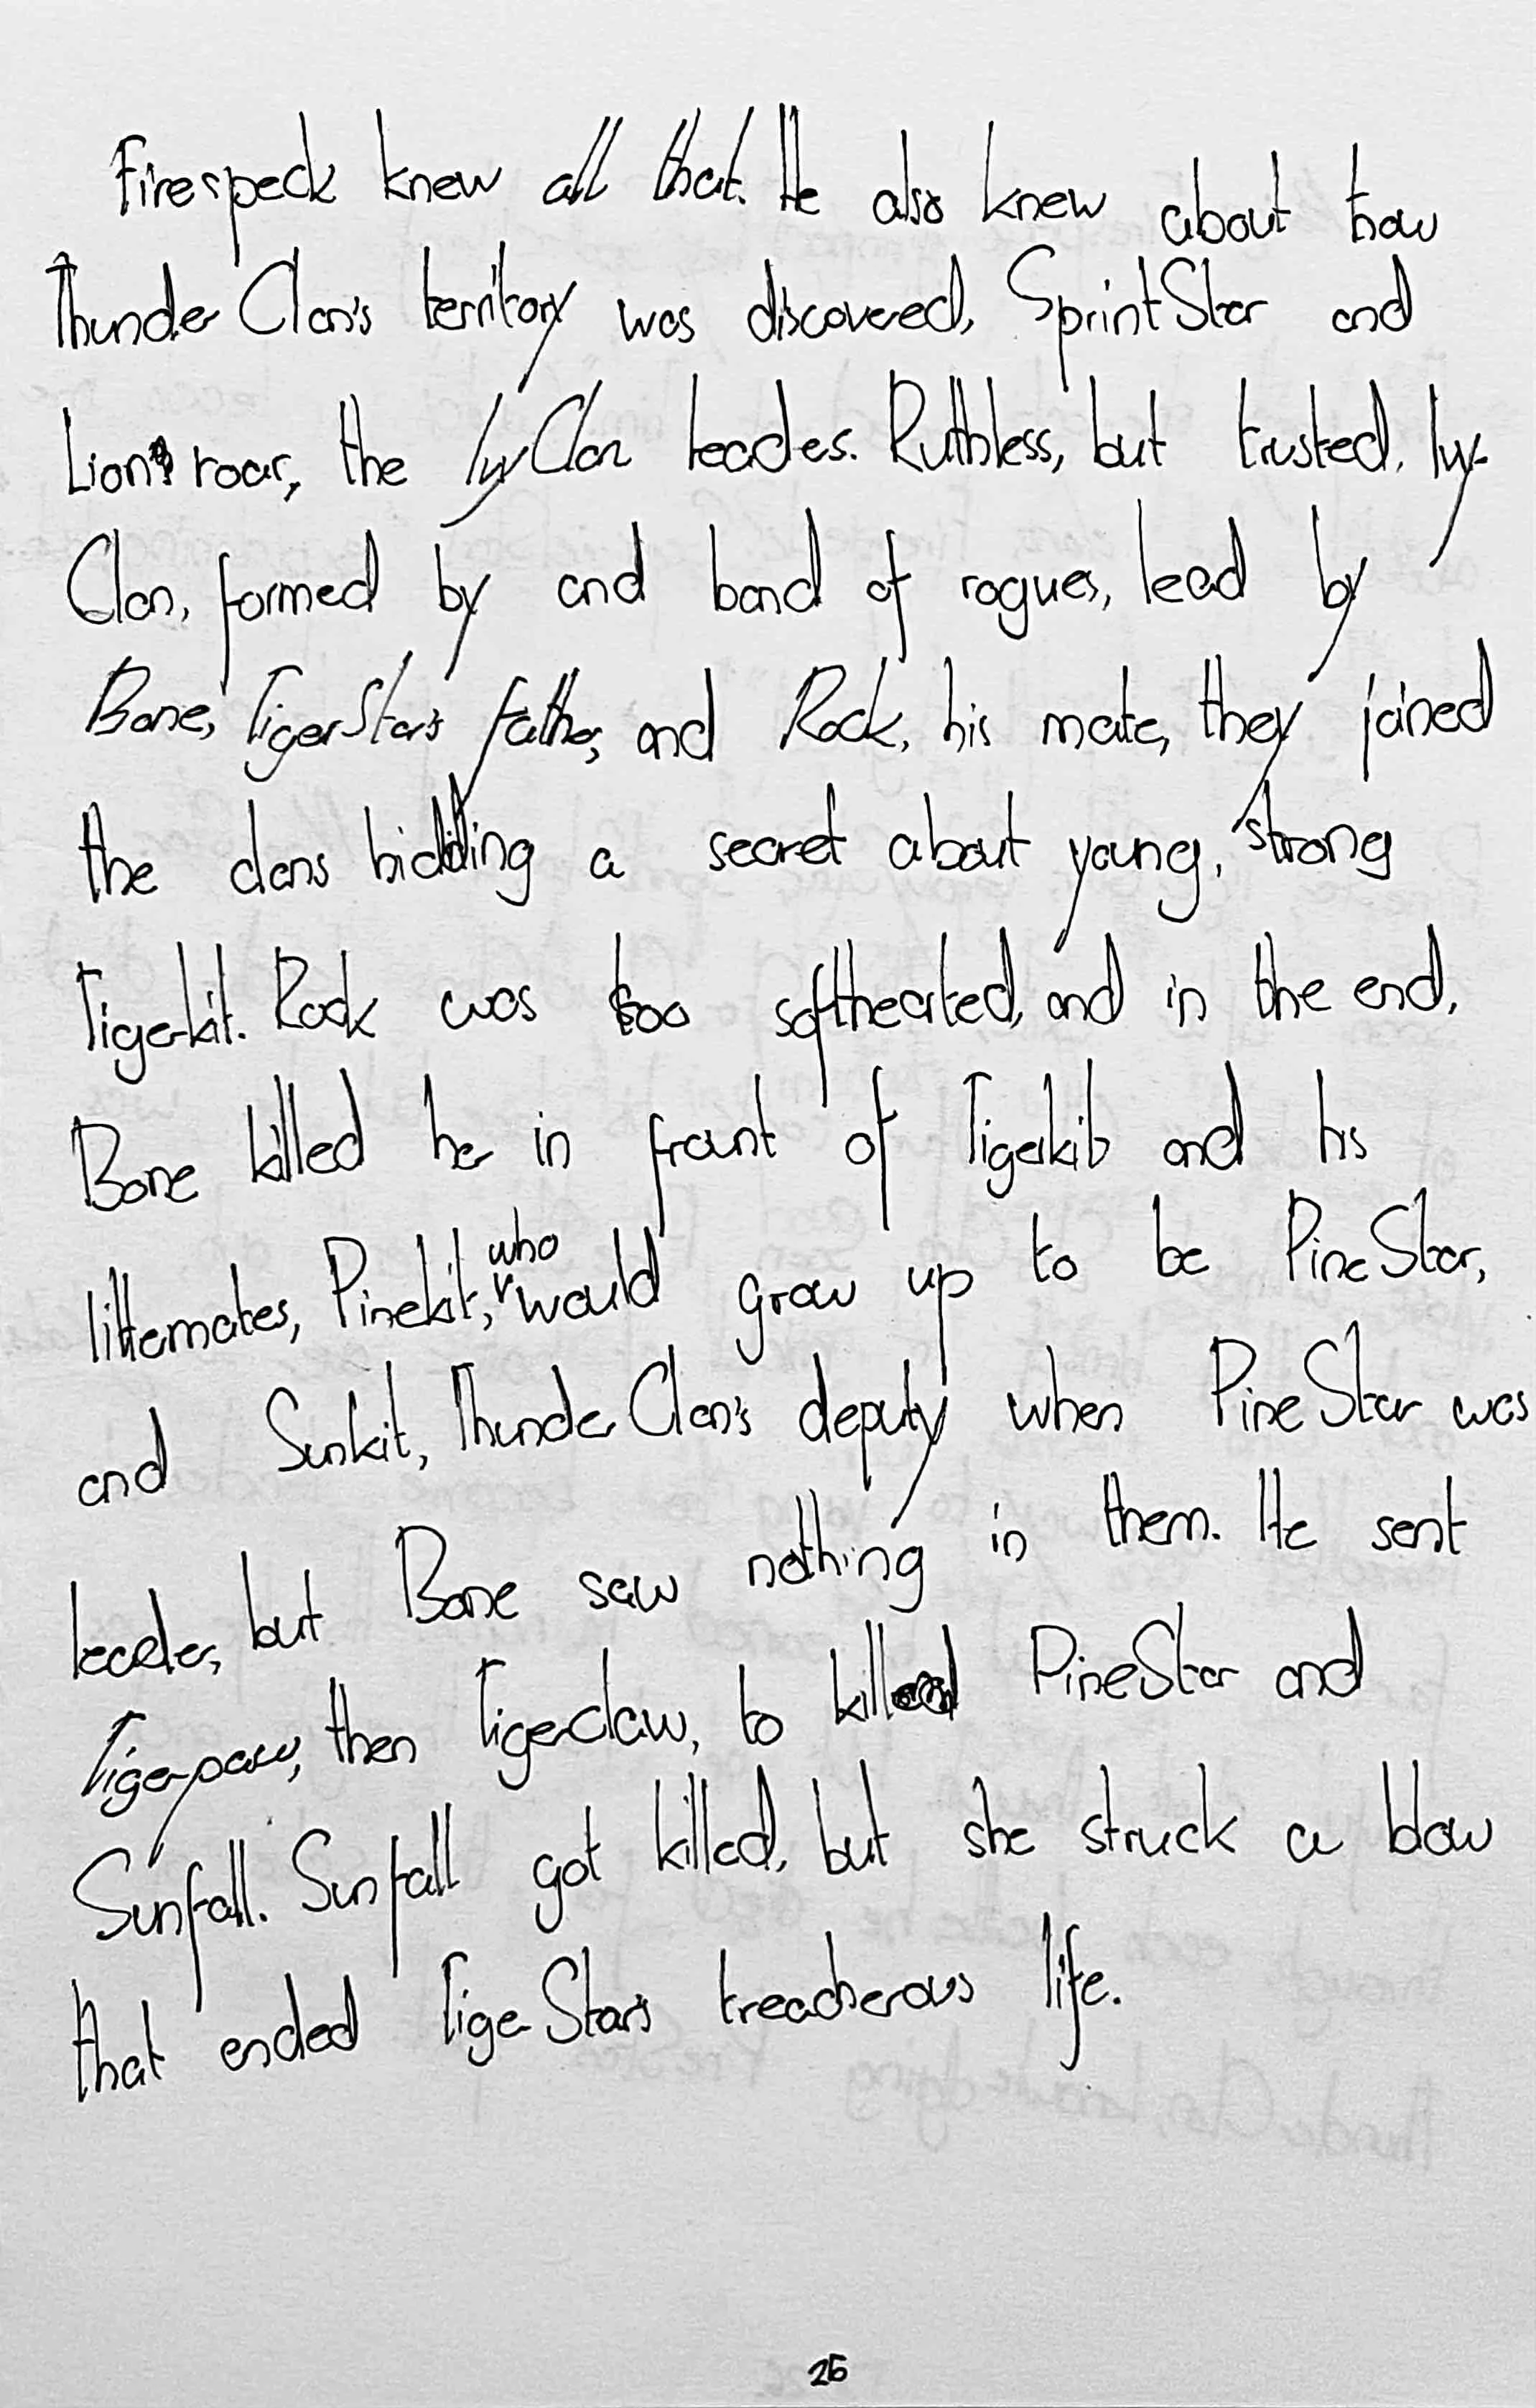 Firespeck knew all that. He also knew about how
ThunderClan's territory was discovered, SprintStar and
Lion's roar, the IvyClan leaders. Ruthless, but trusted, Ivy-
Clan, formed by and band of rogues, lead by
Bone, TigerStar's father, and Rock, his mate, they joined
the clans hidding a secret about young, strong
Tigerkit. Rock was too softhearted, and in the end,
Bone killed her in front of Tigerkit and his
littermates, Pinekit, who would grow up to be PineStar,
and Sunkit, ThunderClan's deputy when PineStar was
leader, but Bone saw nothing in them. He sent
Tigerpaw, then Tigerclaw, to kill PineStar and
Sunfall. Sunfall got killed, but she struck a blow
that ended TigerStar's treacherous life.
26